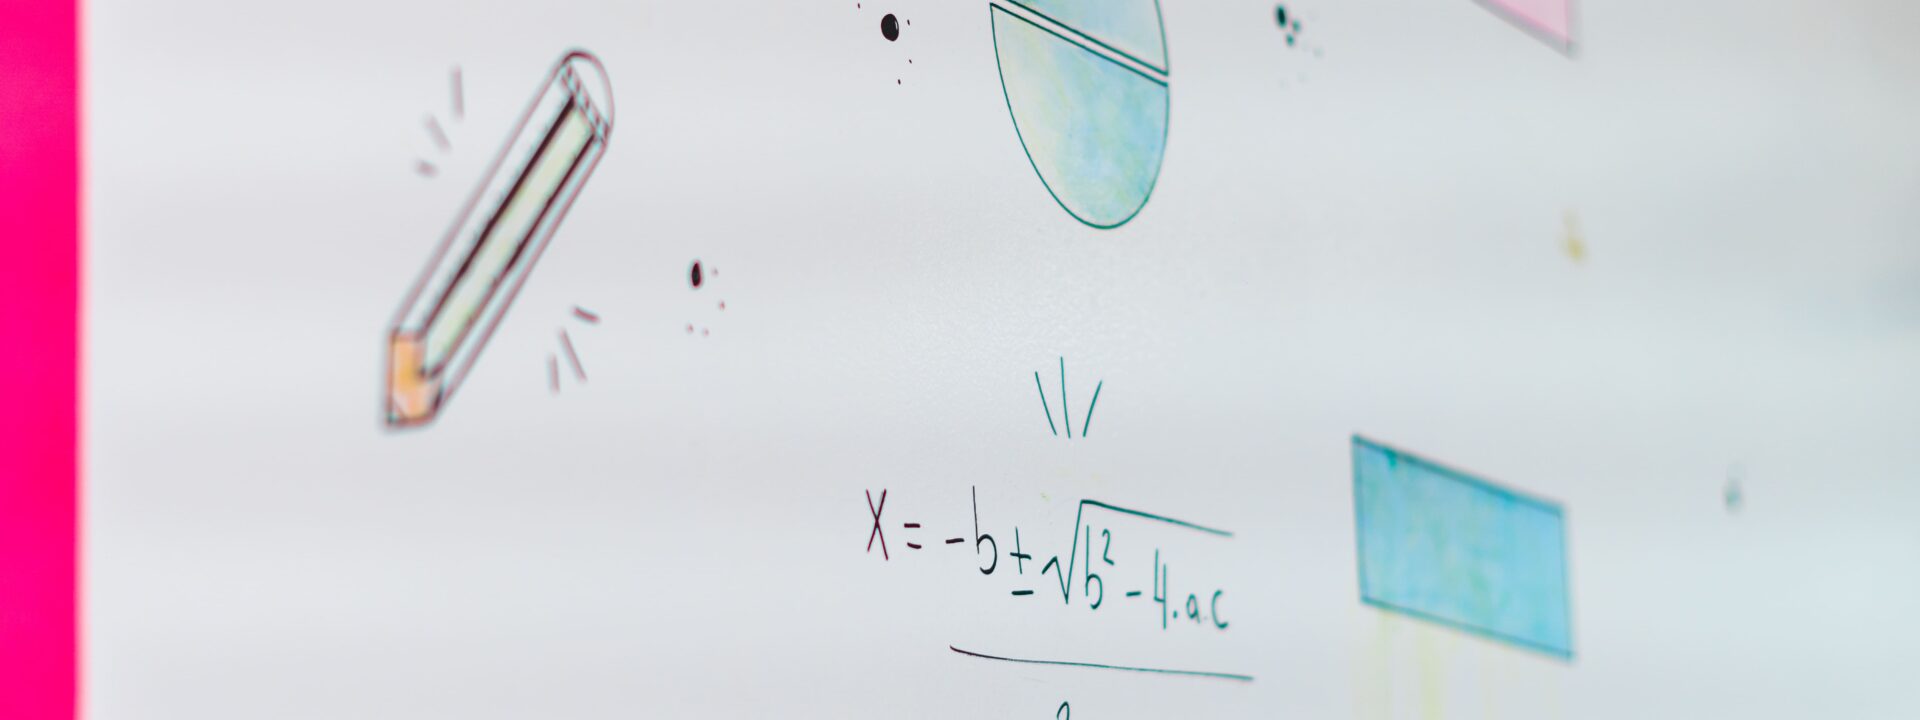 X = -b ± √b² - 4.ac